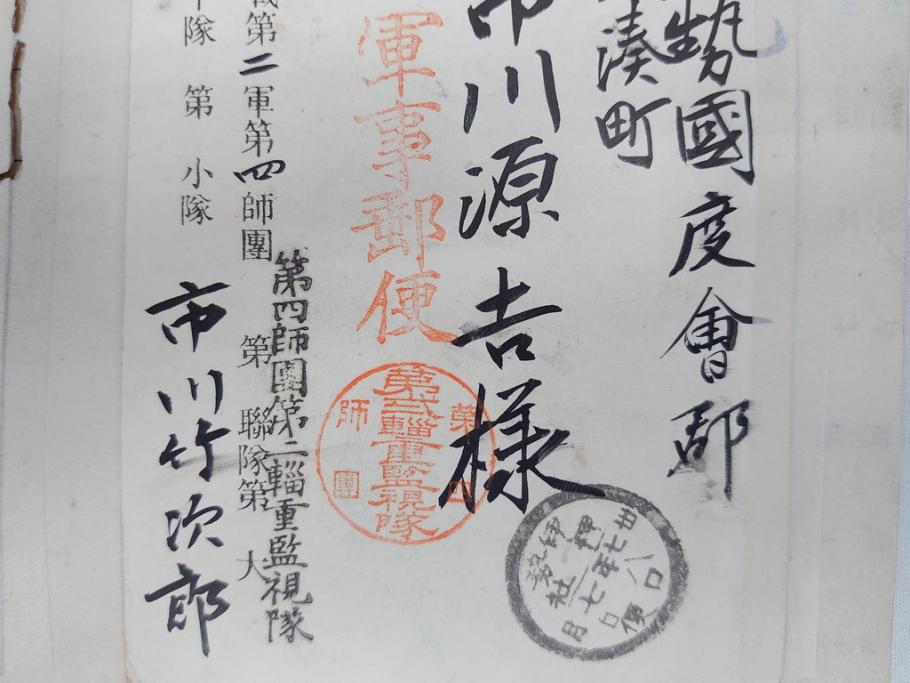 勢國度會郡
湊町
市川源吉様
軍事郵便
第四師團
第弐輜重監視隊
第二軍第四師團 第 聯隊第 大
第四師團第二輜重監視隊
隊 第 小隊
市川竹次郎